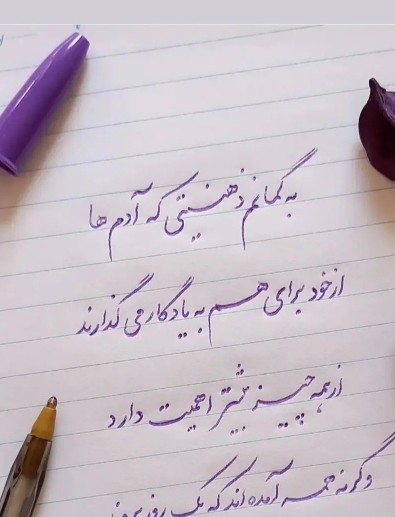 به گمانم ذهنیتی که آدم ها
از خود برای هم به یادگار می گذارند
از همه چیز بیشتر اهمیت دارد
وگرنه همه آمده اند که یک روز بروند